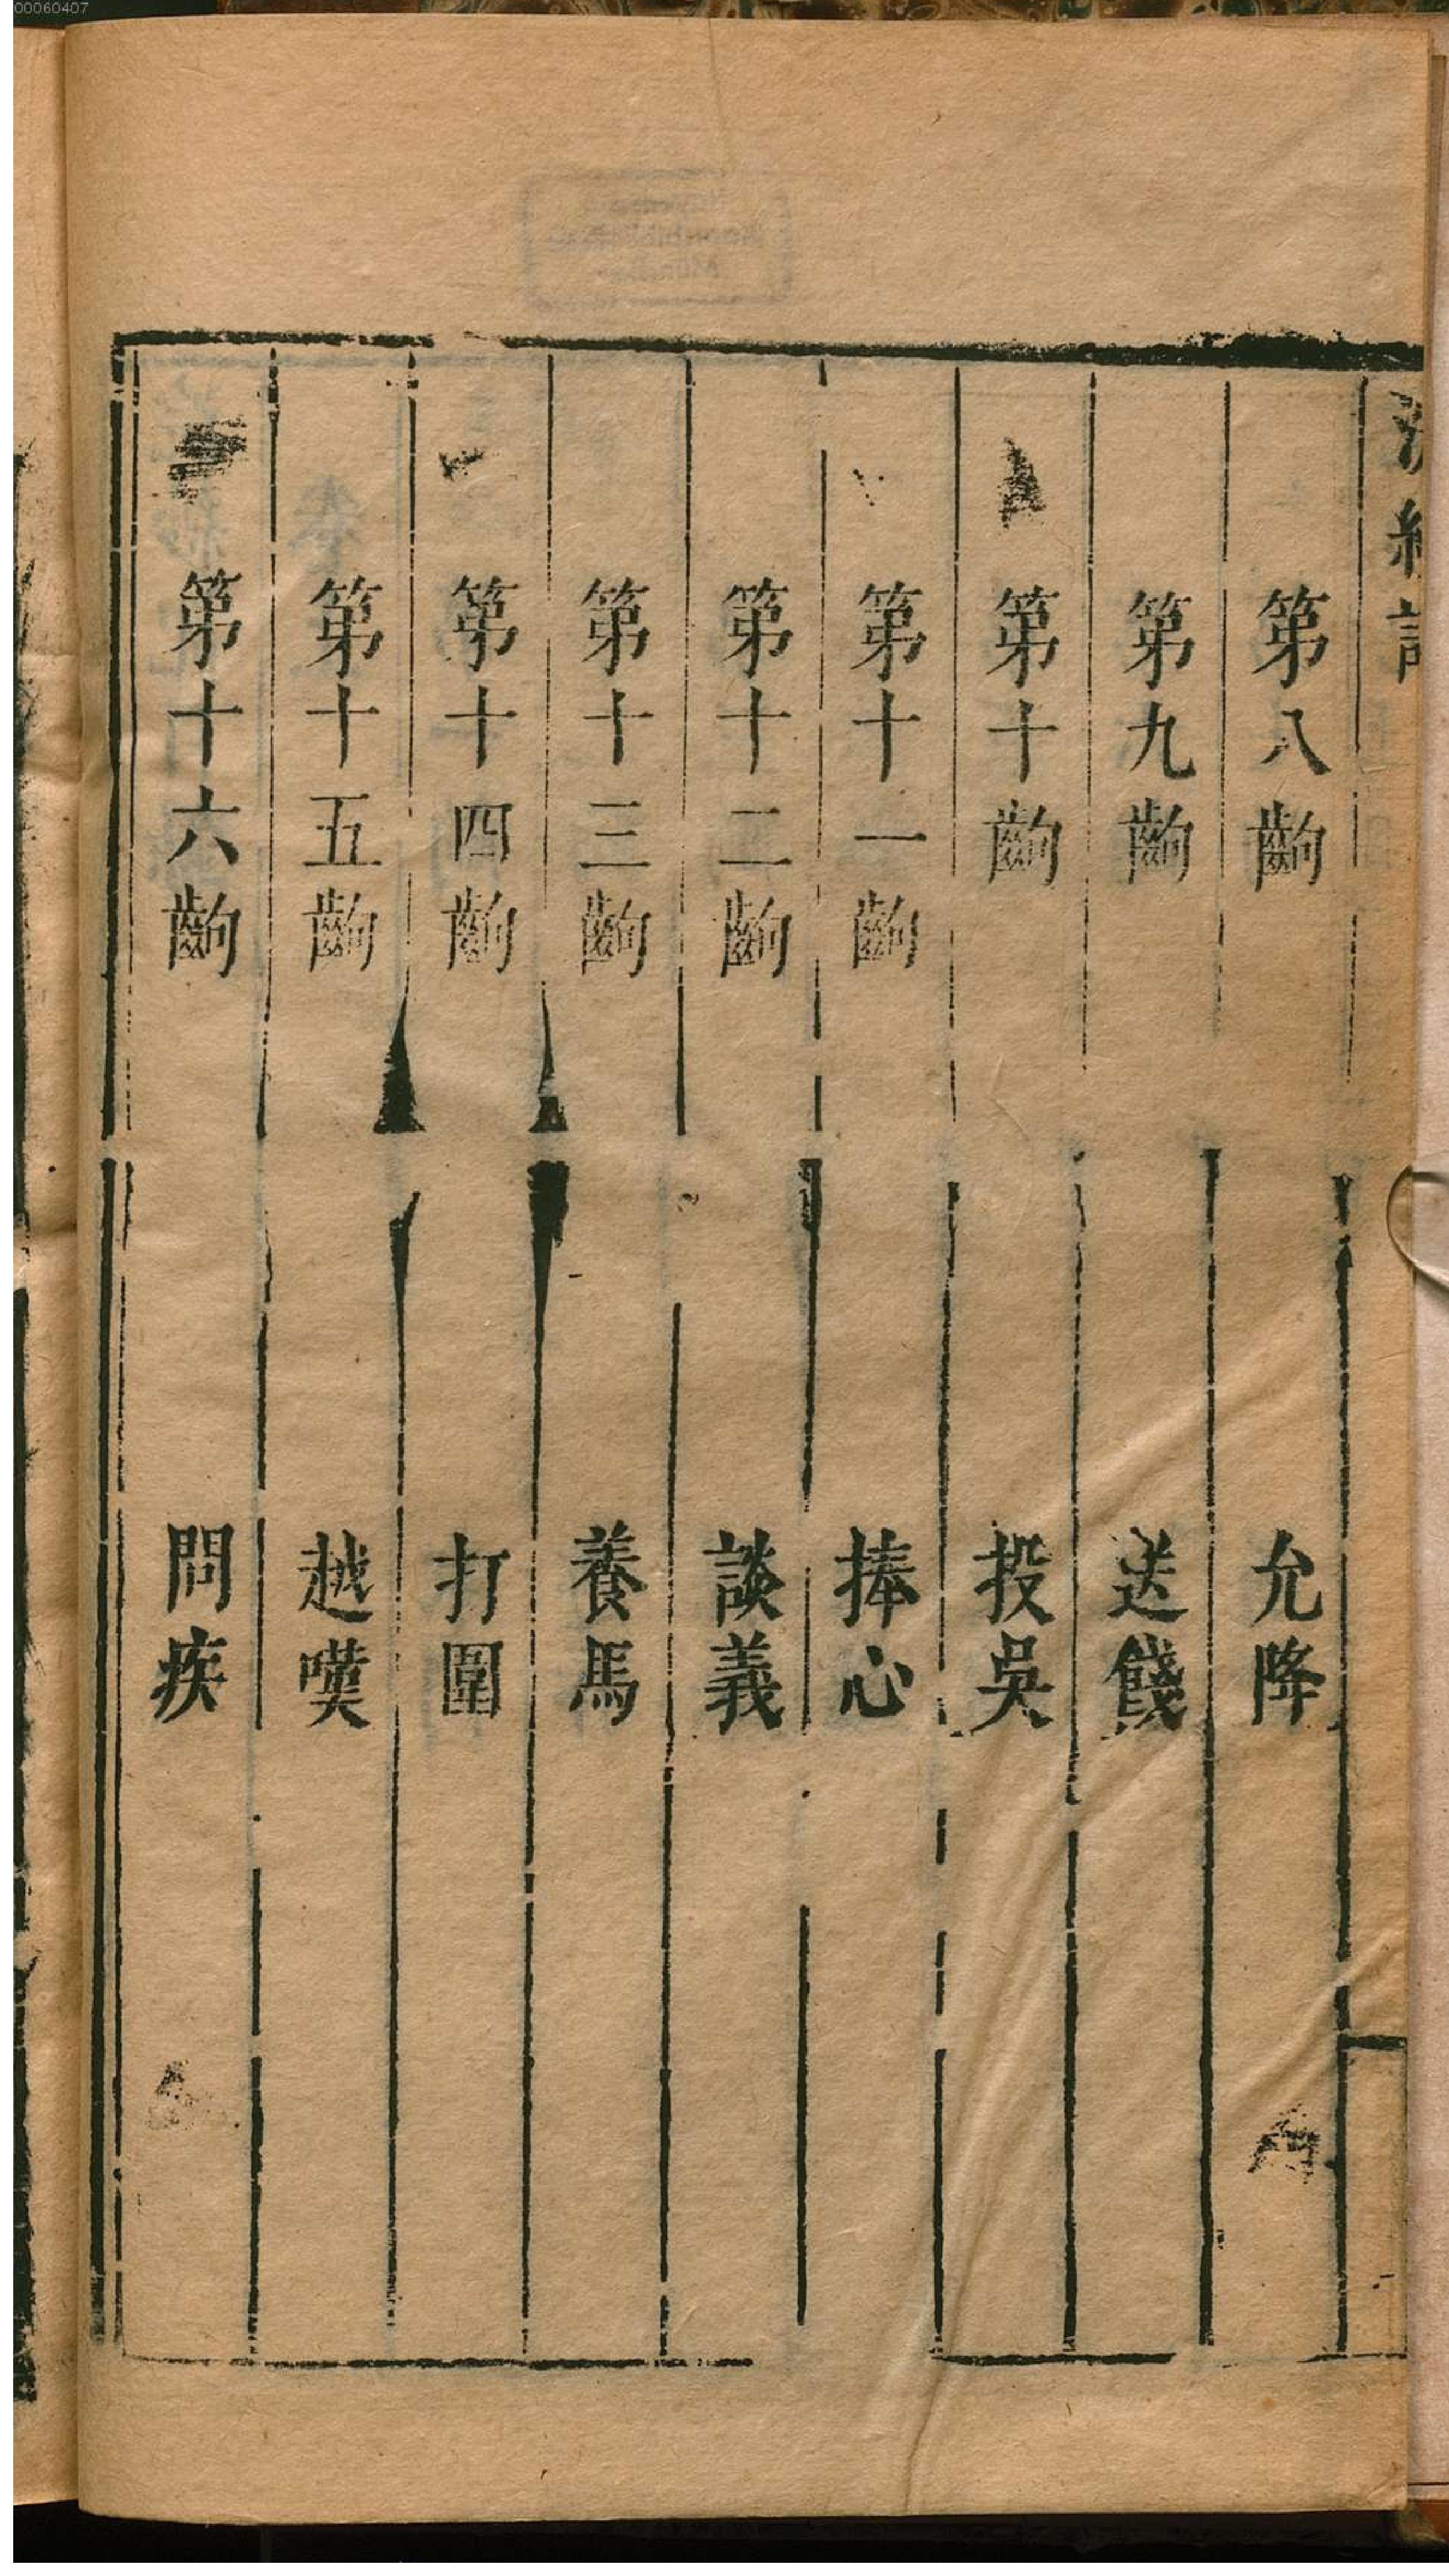 00060407
浣紗記
第八齣 允降
第九齣 送餞
第十齣 投吳
第十一齣 捧心
第十二齣 談義
第十三齣 養馬
第十四齣 打圍
第十五齣 越嘆
第十六齣 問疾